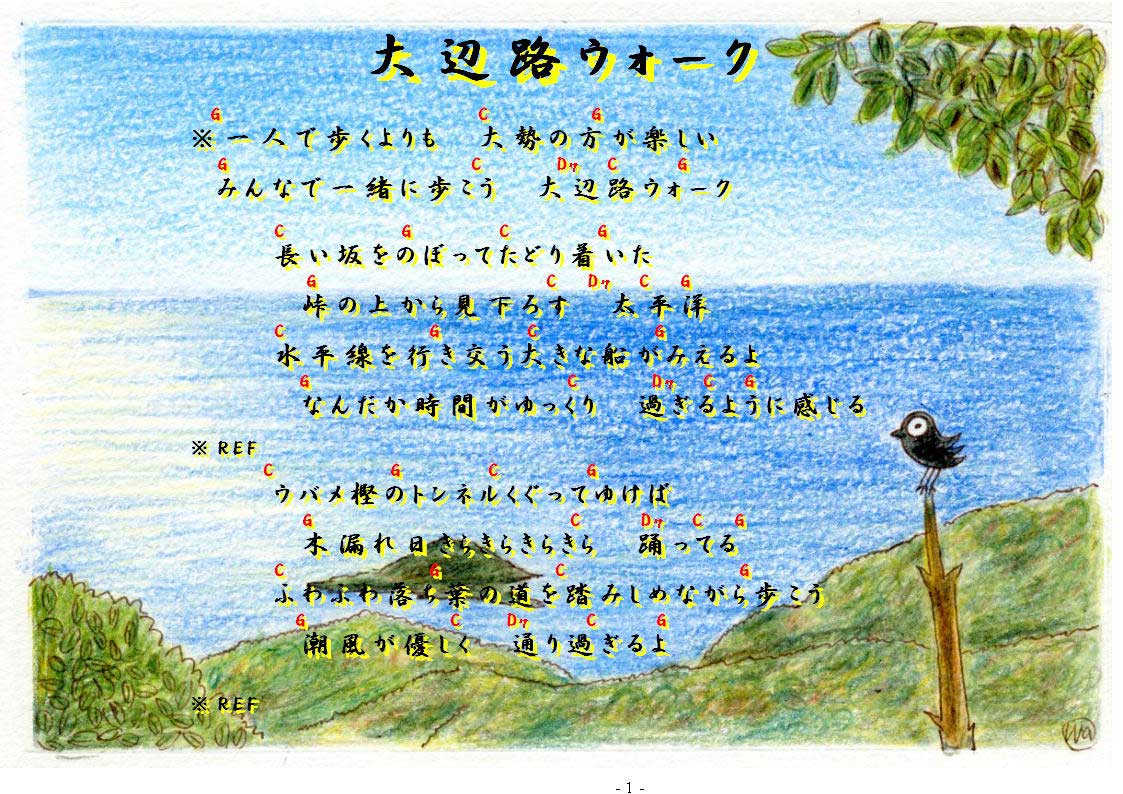 大辺路ウォーク
G C G
※一人で歩くよりも 大勢の方が楽しい
G C D7 C G
みんなで一緒に歩こう 大辺路ウォーク
C G C G
長い坂をのぼってたどり着いた
G C D7 C G
峠の上から見下ろす 太平洋
C G C G
水平線を行き交う大きな船がみえるよ
G C D7 C G
なんだか時間がゆっくり 過ぎるように感じる
※REF
C G C G
ウバメ樫のトンネルくぐってゆけば
G C D7 C G
木漏れ日きらきらきらきら 踊ってる
C G C G
ふわふわ落ち葉の道を踏みしめながら歩こう
G C D7 C G
潮風が優しく 通り過ぎるよ
※REF
- 1 -